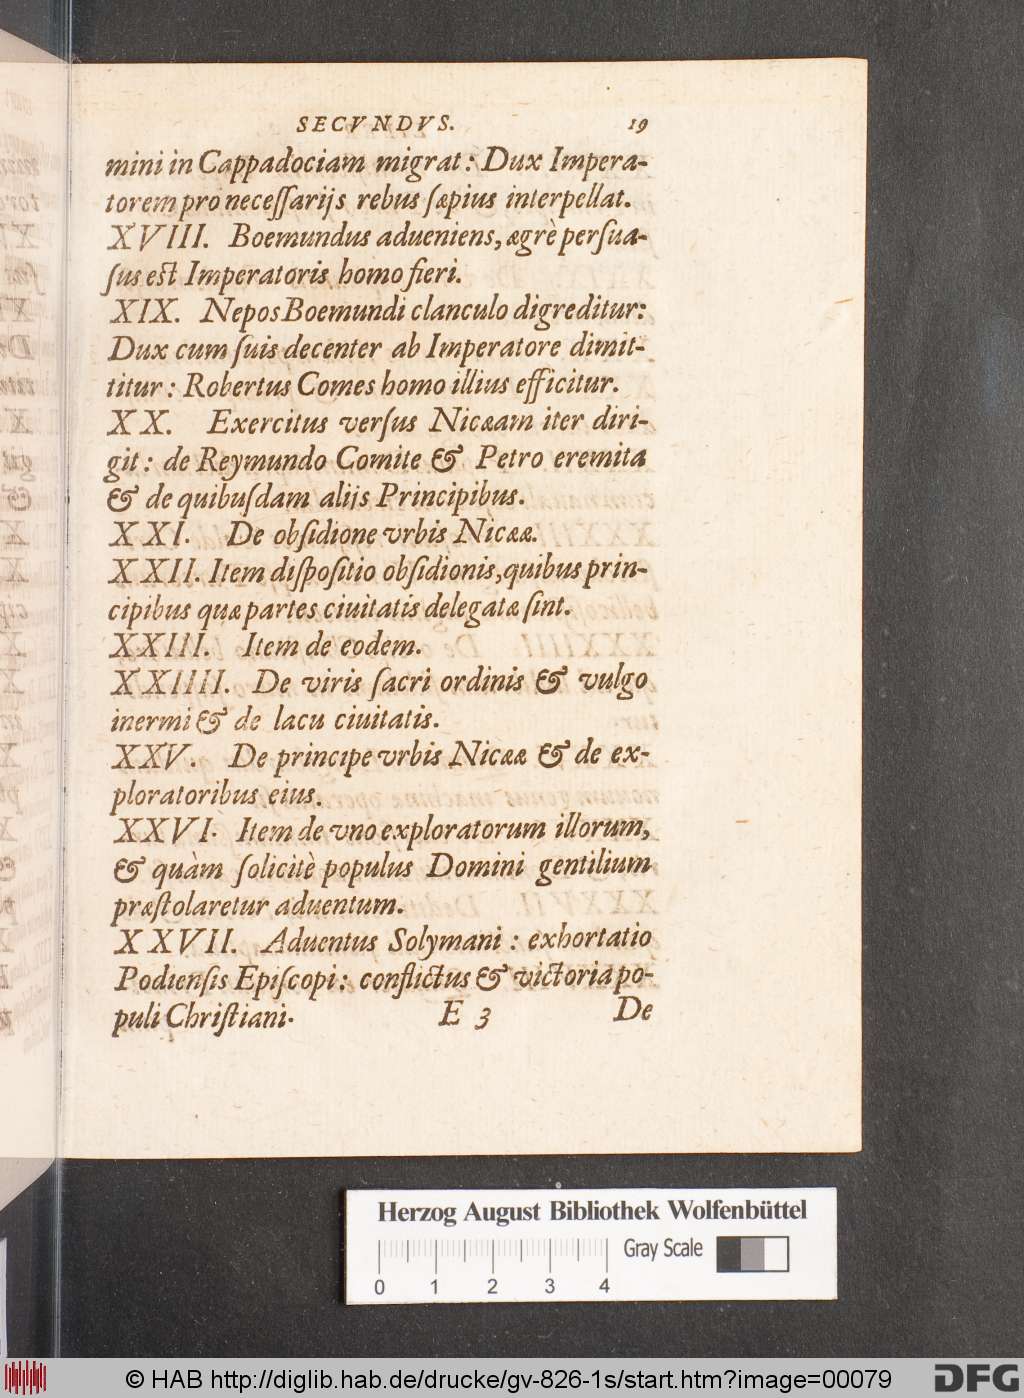 SECVNDVS. 19
mini in Cappadociam migrat: Dux Impera-
torem pro neceſſarijs rebus ſæpius interpellat.
XVIII. Boemundus adueniens, ægrè perſua-
ſus est Imperatoris homo fieri.
XIX. Nepos Boemundi clanculo digreditur:
Dux cum ſuis decenter ab Imperatore dimit-
titur: Robertus Comes homo illius efficitur.
XX. Exercitus verſus Nicæam iter diri-
git: de Reymundo Comite & Petro eremita
& de quibuſdam alijs Principibus.
XXI. De obſidione vrbis Nicææ.
XXII. Item diſpoſitio obſidionis, quibus prin-
cipibus quæ partes ciuitatis delegatæ ſint.
XXIII. Item de eodem.
XXIIII. De viris ſacri ordinis & vulgo
inermi & de lacu ciuitatis.
XXV. De principe vrbis Nicææ & de ex-
ploratoribus eius.
XXVI. Item de vno exploratorum illorum,
& quàm ſolicitè populus Domini gentilium
præſtolaretur aduentum.
XXVII. Aduentus Solymani: exhortatio
Podienſis Epiſcopi: conflictus & victoria po-
puli Chriſtiani. E 3 De
Herzog August Bibliothek Wolfenbüttel
Gray Scale
0 1 2 3 4
© HAB http://diglib.hab.de/drucke/gv-826-1s/start.htm?image=00079
DFG